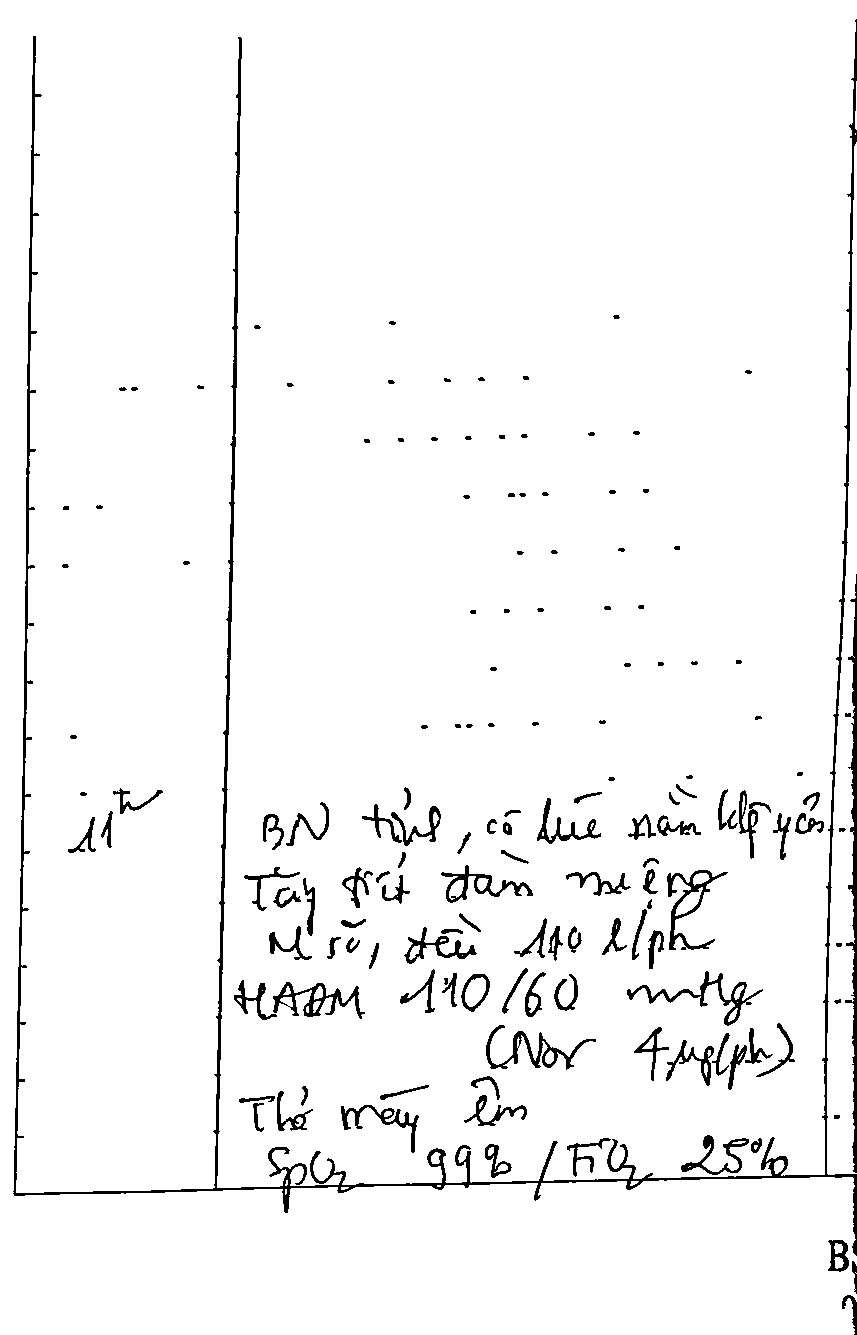 11h
BN tỉnh, có lúc nằm không yên
Tay đút đàm miệng
M rõ, đều 110 l/ph
HAĐM 110/60 mmHg
(Nor 4 µg/ph)
Thở máy êm
SpO₂ 99% / FiO₂ 25%
B